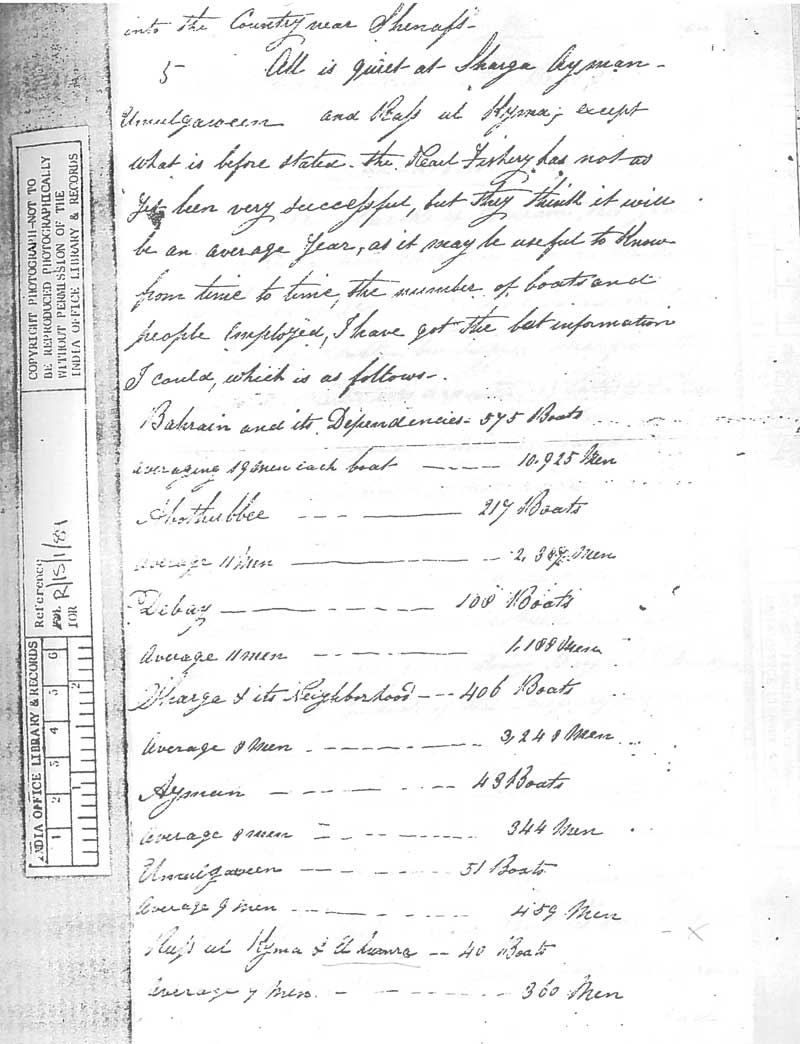 into the Country near Shenass-
5 All is quiet at Sharga Ayman-
Umulgaween and Rass ul Kyma; except
what is before stated. the Pearl Fishery has not as
Yet been very successful, but They think it will
be an average Year, as it may be useful to Know
from time to time, the number of boats and
people Employed, I have got the best information
I could, which is as follows-.
Bahrain and its Dependencies- 575 Boats
averaging 19 men each boat 10.925 Men
Abothubbee 217 Boats
average 11 Men 2,387 Men
Debay 108 Boats
Average 11 men 1,188 Men
Sharga & its Neighborhood 406 Boats
Average 8 Men 3,248 Men
Ayman 43 Boats
Average 8 men 344 Men
Umulgaween 51 Boats
Average 9 men 459 Men
Rass ul Kyma & 40 Boats
average 9 Men. 360 Men
COPYRIGHT PHOTOGRAPH-NOT TO
BE REPRODUCED PHOTOGRAPHICALLY
WITHOUT PERMISSION OF THE
INDIA OFFICE LIBRARY & RECORDS
Reference
R/15/1/81
IOR
INDIA OFFICE LIBRARY & RECORDS
1 2 3 4 5 6
1 2